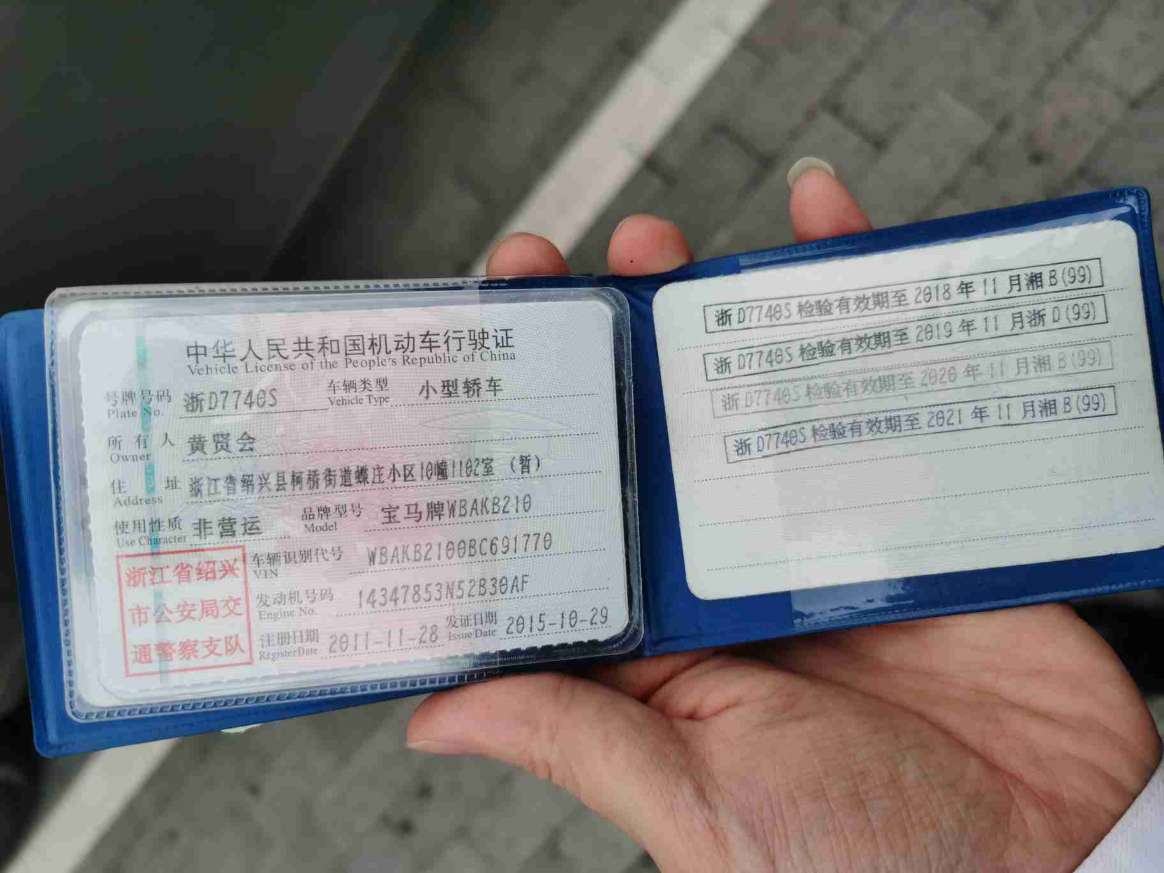 中华人民共和国机动车行驶证
Vehicle License of the People's Republic of China
号牌号码 浙D7740S 车辆类型 小型轿车
Plate No. Vehicle Type
所有人 黄贤会
Owner
住址 浙江省绍兴县柯桥街道蝶庄小区10幢1102室 (暂)
Address
使用性质 非营运 品牌型号 宝马牌WBAKB210
Use Character Model
车辆识别代号 WBAKB2100BC691770
VIN
发动机号码 14347853N52B30AF
Engine No.
注册日期 2011-11-28 发证日期 2015-10-29
Register Date Issue Date
浙江省绍兴
市公安局交
通警察支队
浙D7740S检验有效期至2018年11月湘B(99)
浙D7740S检验有效期至2019年11月浙D(99)
浙D7740S检验有效期至2020年11月湘B(99)
浙D7740S检验有效期至2021年11月湘B(99)